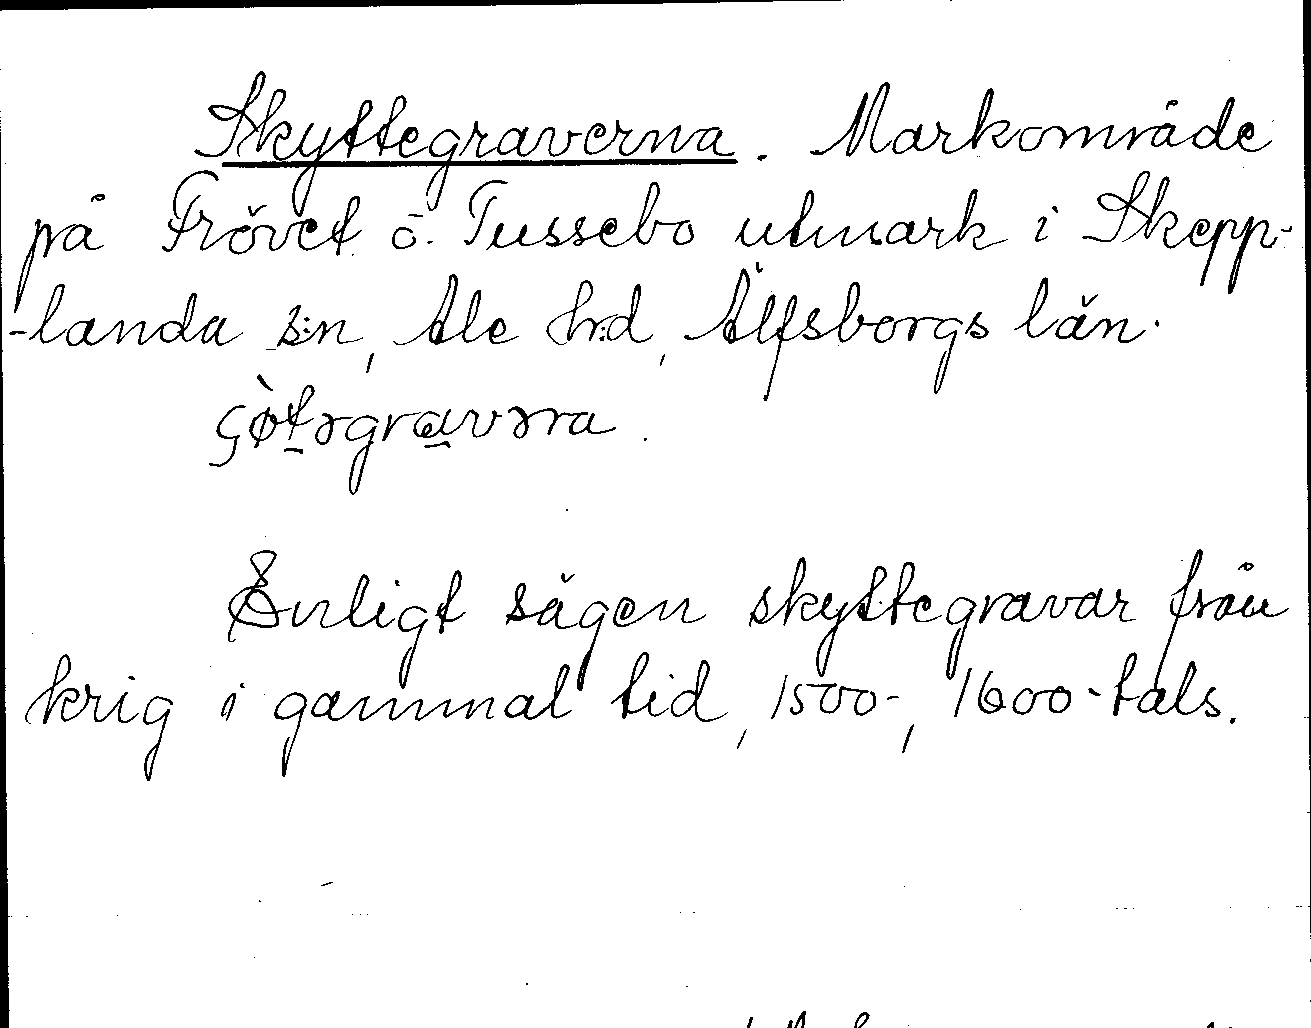 Skyttegraverna. Markområde
på Frövet o. Tussebo utmark i Skepp-
-landa s:n, Ale h:d, Älfsborgs län.
Enligt sägen skyttegravar från
krig i gammal tid, 1500-, 1600-tals.